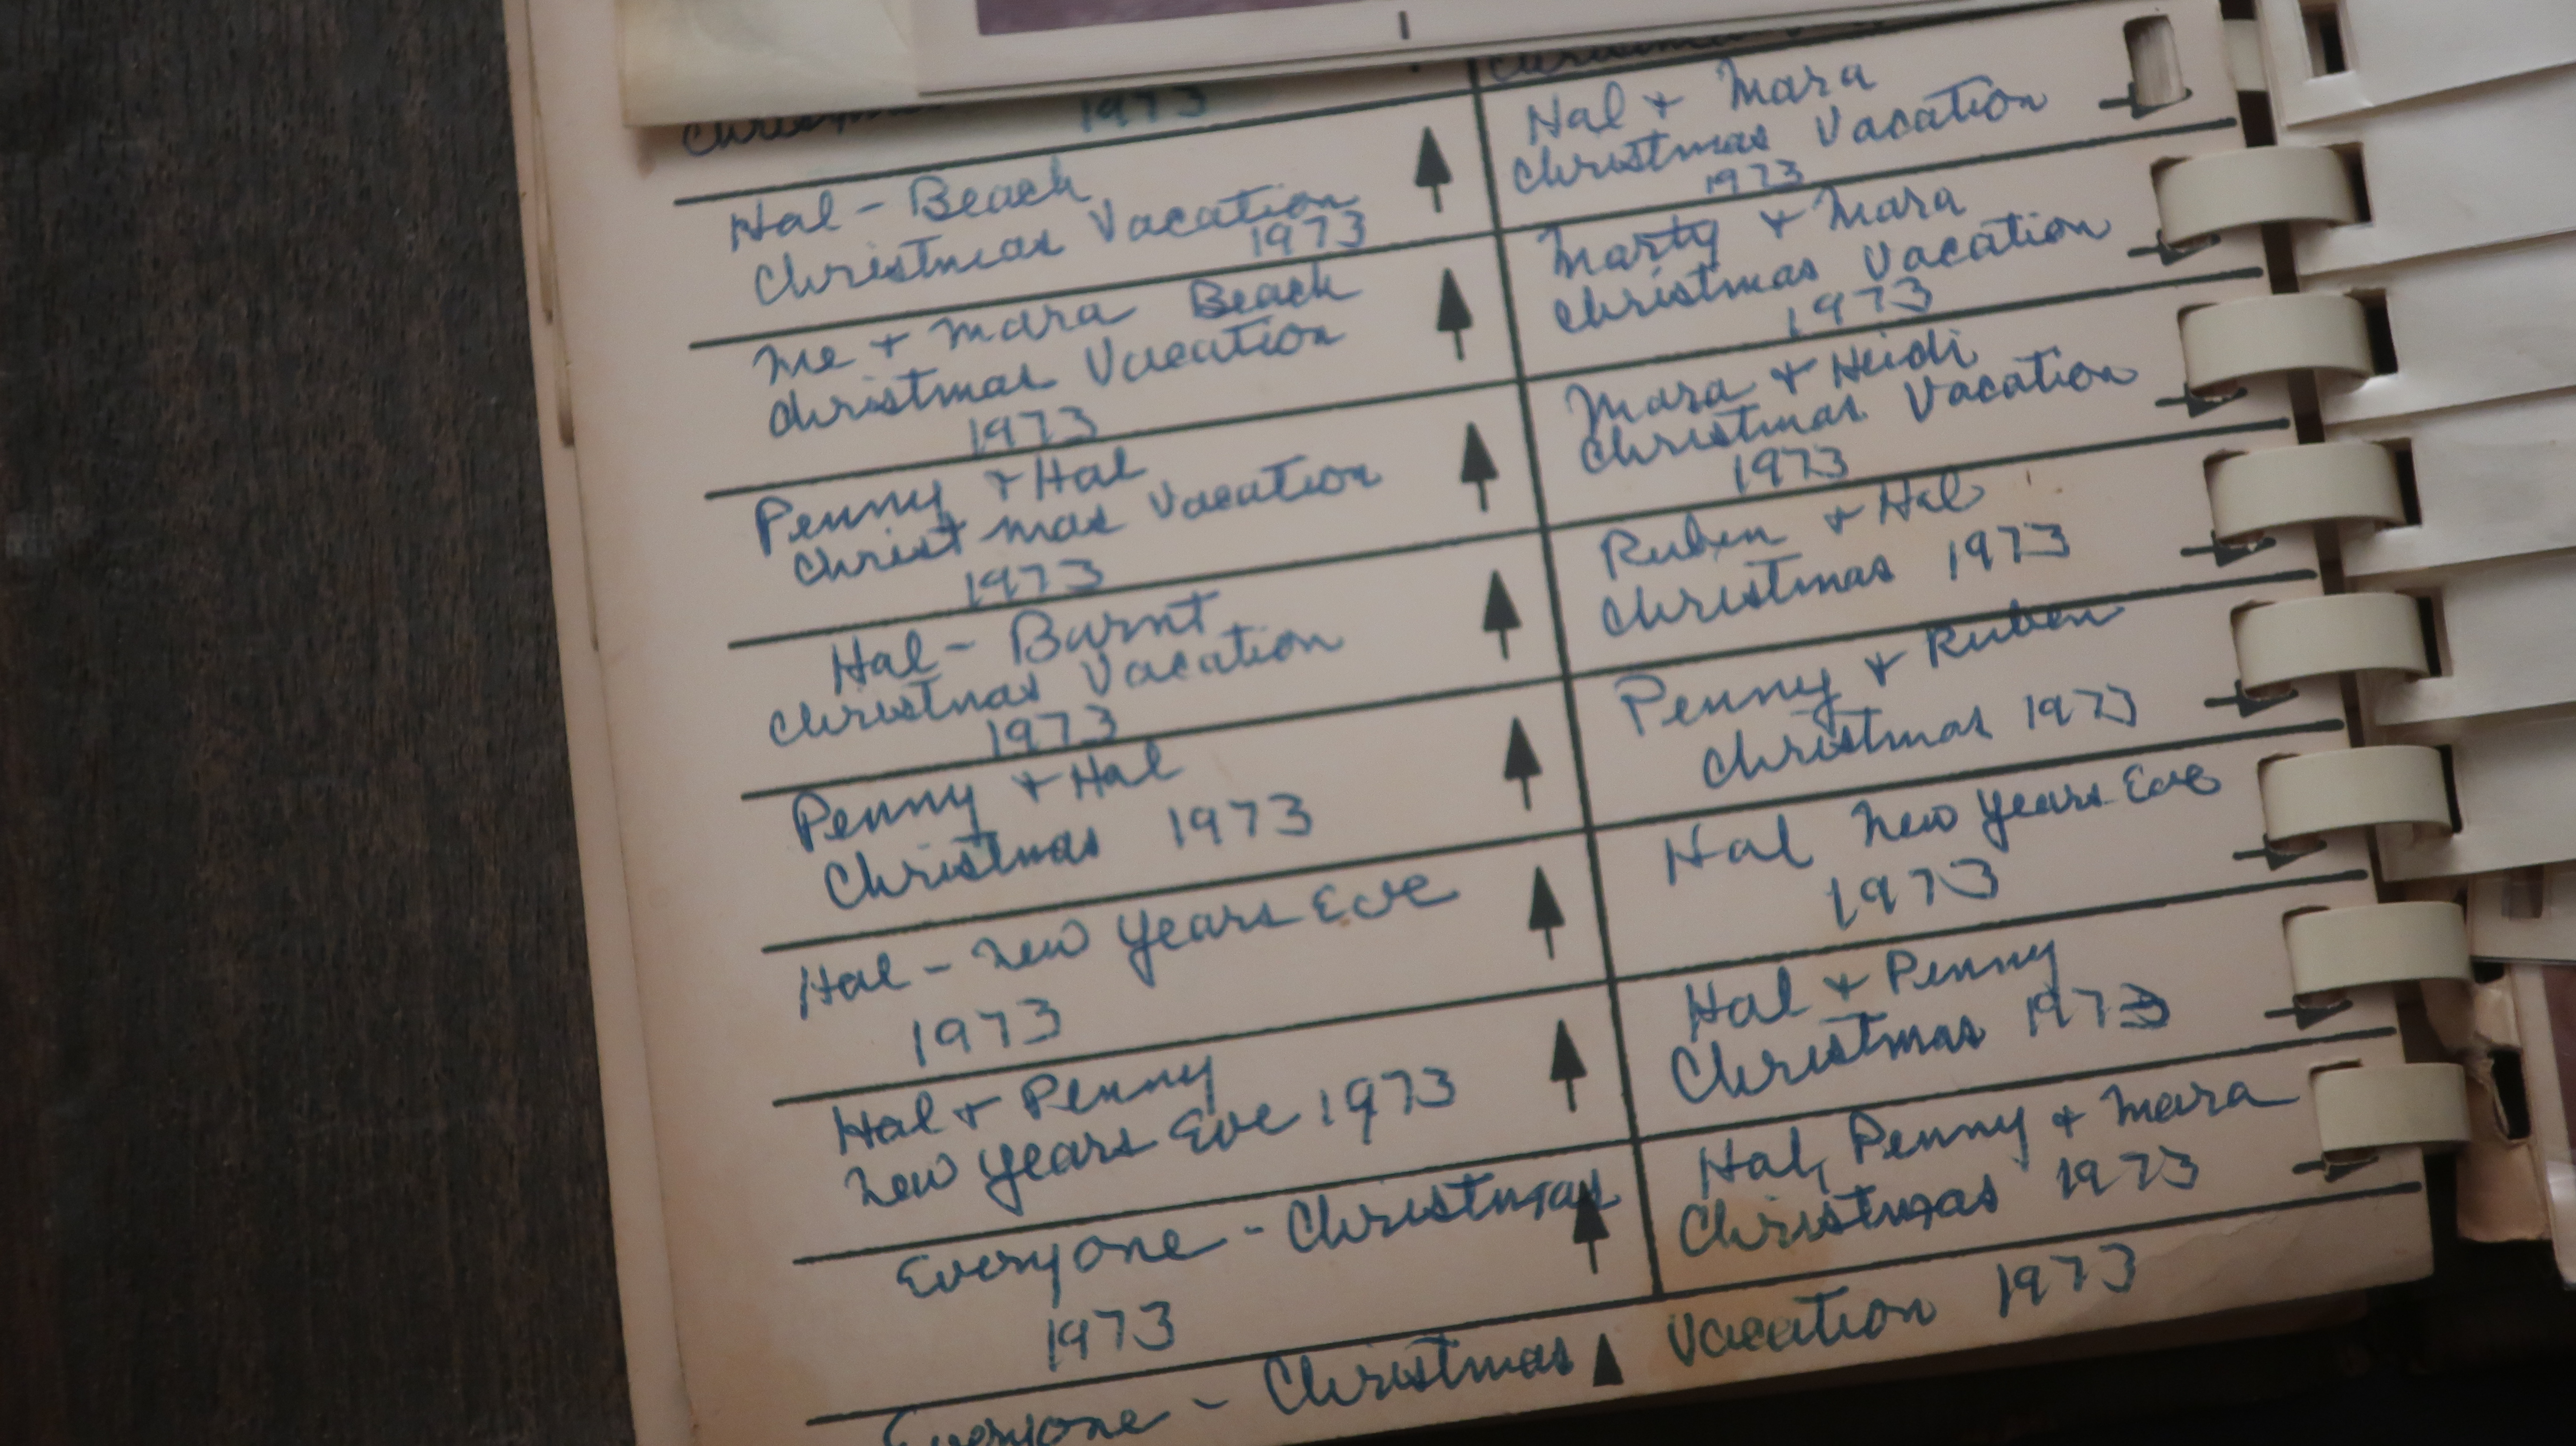 Christmas
1973
Hal - Beach
Christmas Vacation
1973
Me + Mara Beach
Christmas Vacation
1973
Penny + Hal
Christmas Vacation
1973
Hal - Burnt
Christmas Vacation
1973
Penny + Hal
Christmas 1973
Hal - New Years Eve
1973
Hal + Penny
New Years Eve 1973
Everyone - Christmas
1973
Hal + Mara
Christmas Vacation
1973
Marty + Mara
Christmas Vacation
1973
Mara + Heidi
Christmas Vacation
1973
Ruben + Hal
Christmas 1973
Penny + Ruben
Christmas 1973
Hal New Years Eve
1973
Hal + Penny
Christmas 1973
Hal, Penny + Mara
Christmas 1973
Everyone - Christmas Vacation 1973